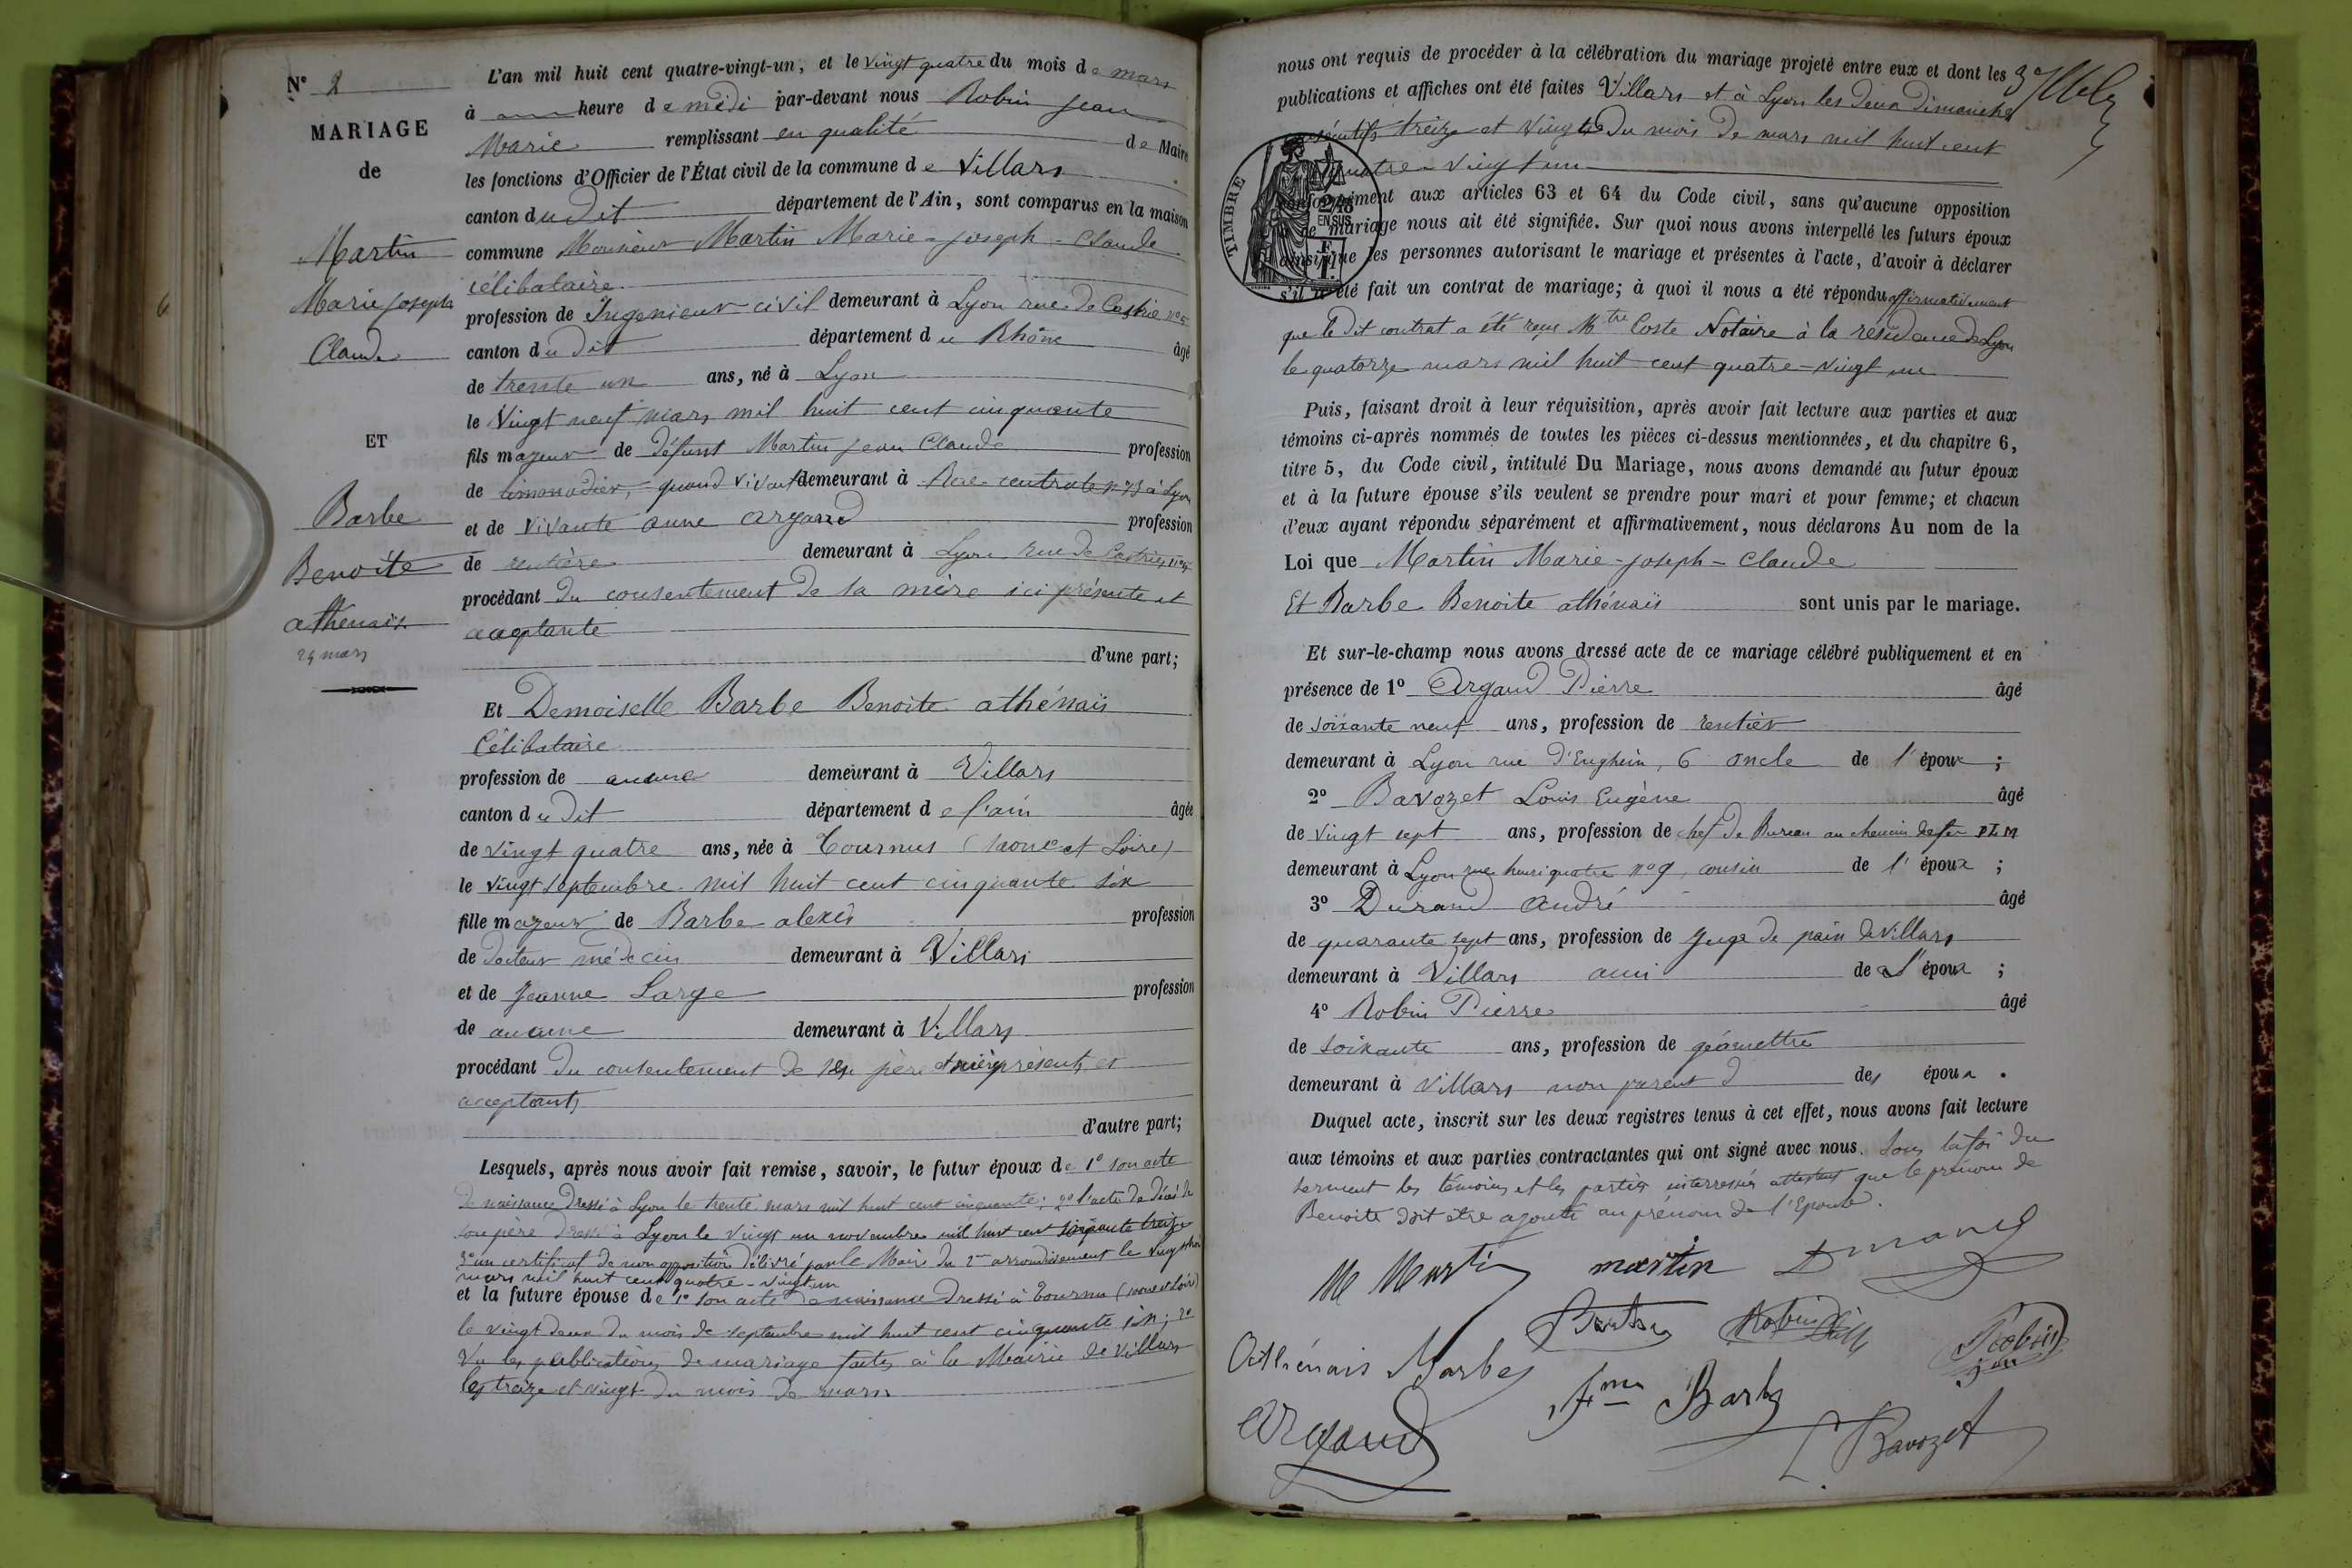 N° 2
MARIAGE
de
Martin
Marie Joseph
Claude
ET
Barbe
Benoîte
athénaïs
24 mars
L'an mil huit cent quatre-vingt-un, et le vingt quatre du mois de mars
à heure de midi par-devant nous Robin Jean
Marie remplissant en qualité de Maire
les fonctions d'Officier de l'État civil de la commune de Villars
canton du dit département de l'Ain, sont comparus en la maison
commune Monsieur Martin Marie-Joseph-Claude
célibataire
profession de Ingenieur civil demeurant à Lyon rue de Castrie n° 5
canton du dit département du Rhône âgé
de trente un ans, né à Lyon
le Vingt neuf mars mil huit cent cinquante
fils majeur de défunt Martin Jean Claude profession
de limonadier, quand vivait demeurant à Rue centrale n° à Lyon
et de vivante anne argand profession
de rentière demeurant à Lyon rue de Castries n°
procédant du consentement de sa mère ici présente et
acceptante
d'une part;
Et Demoiselle Barbe Benoite athénaïs
Célibataire
profession de aucune demeurant à Villars
canton du dit département de l'ain âgée
de vingt quatre ans, née à Tournus (Saone et Loire)
le vingt septembre mil huit cent cinquante six
fille majeur de Barbe alexis profession
de docteur médecin demeurant à Villars
et de Jeanne Large profession
de aucune demeurant à Villars
procédant du consentement de ses père et mère présents et
acceptants
d'autre part;
Lesquels, après nous avoir fait remise, savoir, le futur époux de 1° son acte
de naissance dressé à Lyon le trente mars mil huit cent cinquante; 2° l'acte de décès de
son père dressé à Lyon le vingt un novembre mil huit cent soixante treize
3° un certificat de non opposition délivré par le Maire du 2me arrondissement le
mars mil huit cent quatre-vingt un
et la future épouse de 1° son acte de naissance dressé à Tournus (saone et loire)
le vingt deux du mois de septembre mil huit cent cinquante six; 2°
Vu les publications de mariage faites à la Mairie de Villars
les treize et vingt du mois de mars
nous ont requis de procéder à la célébration du mariage projeté entre eux et dont les
publications et affiches ont été faites Villars et à Lyon les deux dimanches
consécutifs treize et vingt du mois de mars mil huit cent
quatre-vingt un
TIMBRE
2/10
EN SUS
conformément aux articles 63 et 64 du Code civil, sans qu'aucune opposition
à ce mariage nous ait été signifiée. Sur quoi nous avons interpellé les futurs époux
ainsi que les personnes autorisant le mariage et présentes à l'acte, d'avoir à déclarer
s'il a été fait un contrat de mariage; à quoi il nous a été répondu affirmativement
que le dit contrat a été reçu Mtre Coste Notaire à la résidence de Lyon
le quatorze mars mil huit cent quatre-vingt un
Puis, faisant droit à leur réquisition, après avoir fait lecture aux parties et aux
témoins ci-après nommés de toutes les pièces ci-dessus mentionnées, et du chapitre 6,
titre 5, du Code civil, intitulé Du Mariage, nous avons demandé au futur époux
et à la future épouse s'ils veulent se prendre pour mari et pour femme; et chacun
d'eux ayant répondu séparément et affirmativement, nous déclarons Au nom de la
Loi que Martin Marie-Joseph-Claude
Et Barbe Benoite athénaïs sont unis par le mariage.
Et sur-le-champ nous avons dressé acte de ce mariage célébré publiquement et en
présence de 1° Argaud Pierre âgé
de soixante neuf ans, profession de rentier
demeurant à Lyon rue d'Enghein, 6 oncle de l'époux ;
2° Bavozet Louis Eugène âgé
de vingt sept ans, profession de chef de Bureau au chemin de fer PLM
demeurant à Lyon rue henri quatre n° 9, cousin de l'époux ;
3° Durand André âgé
de quarante sept ans, profession de Juge de paix de Villars
demeurant à Villars ami de l'époux ;
4° Robin Pierre âgé
de soixante ans, profession de géomettre
demeurant à Villars non parent des époux.
Duquel acte, inscrit sur les deux registres tenus à cet effet, nous avons fait lecture
aux témoins et aux parties contractantes qui ont signé avec nous. Sous la foi du
serment les témoins et les parties interressées attestent que le prénom de
Benoite doit être ajouté au prénom de l'Epouse.
M Martin martin Durand
Robin Robin
Athénaïs Barbe
Jean
Argaud Barbe
L. Bavozet